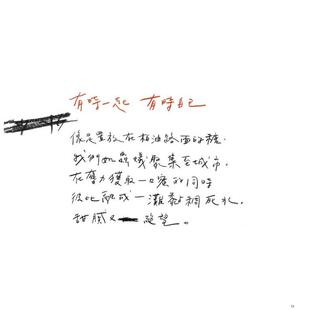 有時一起 有時自己
像是置放在柏油路面的糖，
我們如螞蟻聚集至城市，
在奮力獲取一口蜜的同時
彼此融成一灘黏稠死水，
甜膩又絕望。